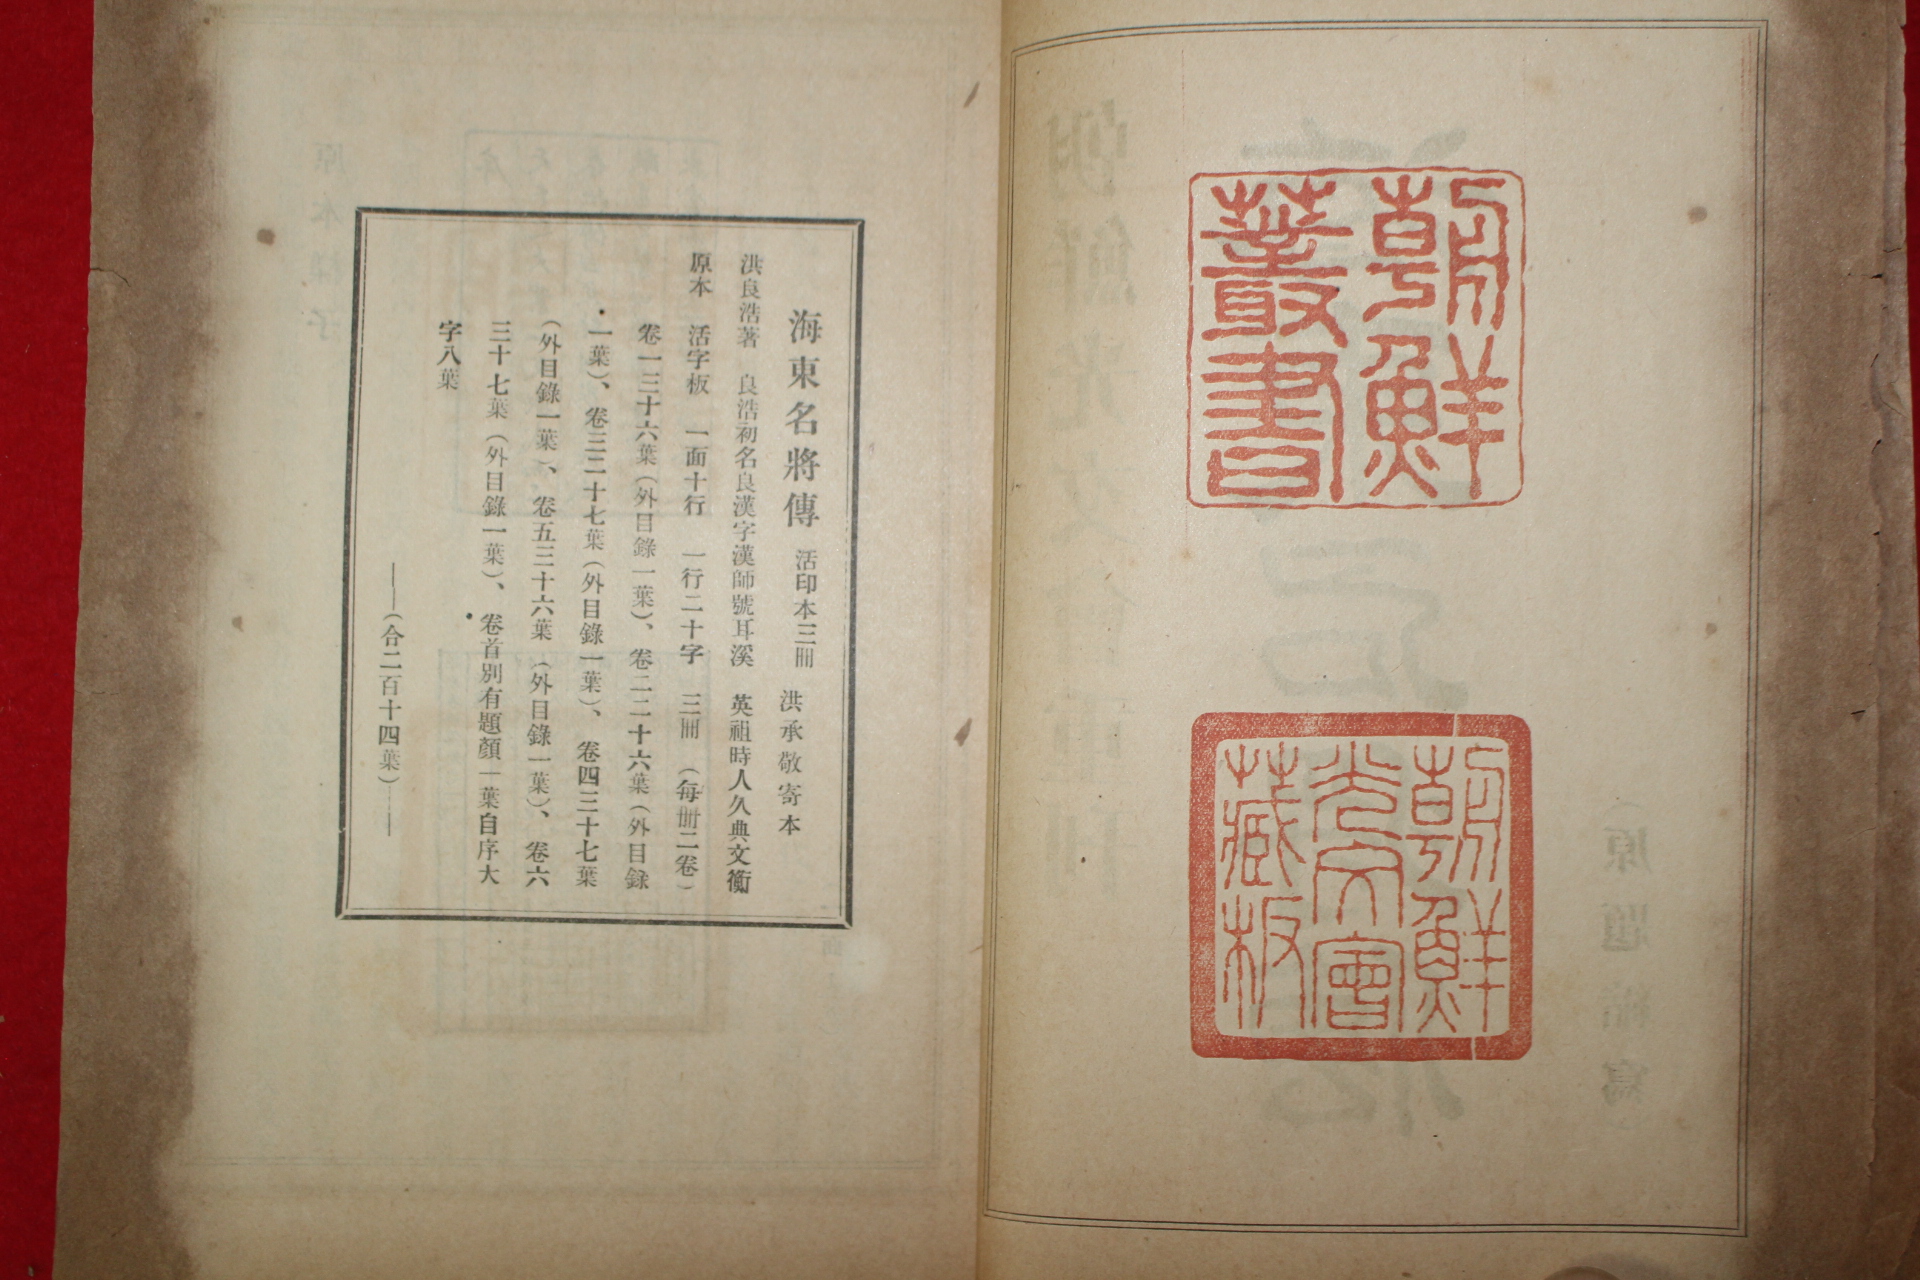 朝鮮
叢書
朝鮮
光文會
藏板
海東名將傳 活印本三冊 洪承敬寄本
洪良浩著 良浩初名良漢字漢師號耳溪 英祖時人久典文衡
原本 活字板 一面十行 一行二十字 三冊 (每冊二卷)
卷一三十六葉(外目錄一葉)、卷二二十六葉(外目錄
一葉)、卷三二十七葉(外目錄一葉)、卷四三十七葉
(外目錄一葉)、卷五三十六葉(外目錄一葉)、卷六
三十七葉(外目錄一葉)、卷首別有題顏一葉自序大
字八葉
——(合二百十四葉)——